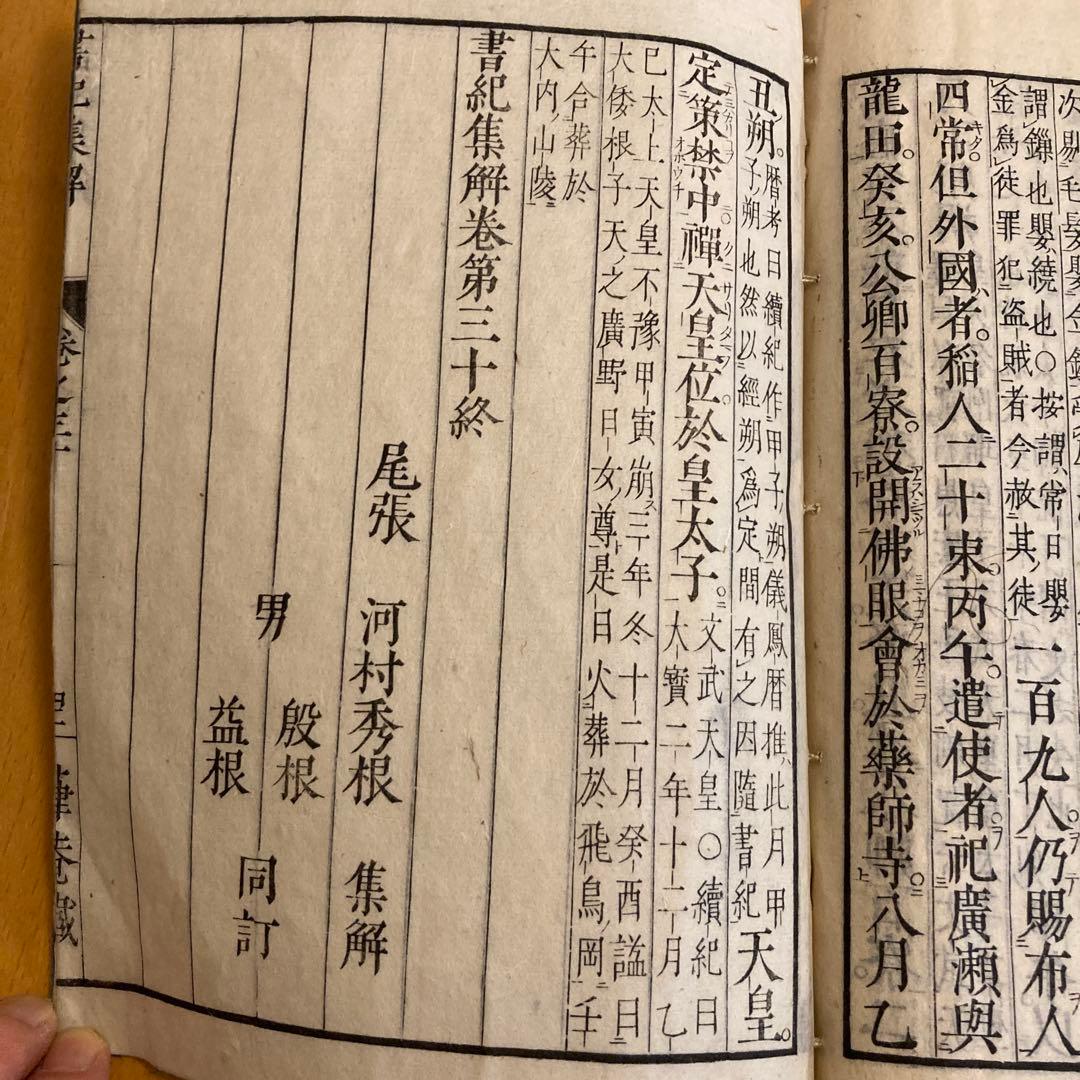 謂鏁也嬰繞也〇按謂常日嬰
金爲徒罪犯盜賊者今赦其徒
一百九人仍賜布人
四常但外國者。稻人二十束。丙午。遣使者祀廣瀬與
龍田。癸亥。公卿百寮。設開佛眼會於藥師寺。八月乙
丑朔。
曆考曰續紀作甲子朔儀鳳曆推此月甲
子朔也然以經朔爲定間有之因隨書紀
天皇。
定策禁中禪天皇位於皇太子。
文武天皇〇續紀曰
大寶二年十二月乙
巳太上天皇不豫甲寅崩三年冬十二月癸酉謚曰
大倭根子天之廣野日女尊是日火葬於飛鳥岡壬
午合葬於
大内山陵
書紀集解卷第三十終
尾張 河村秀根 集解
男 殷根
益根
同訂
書紀集解 卷之三十 葎菴藏